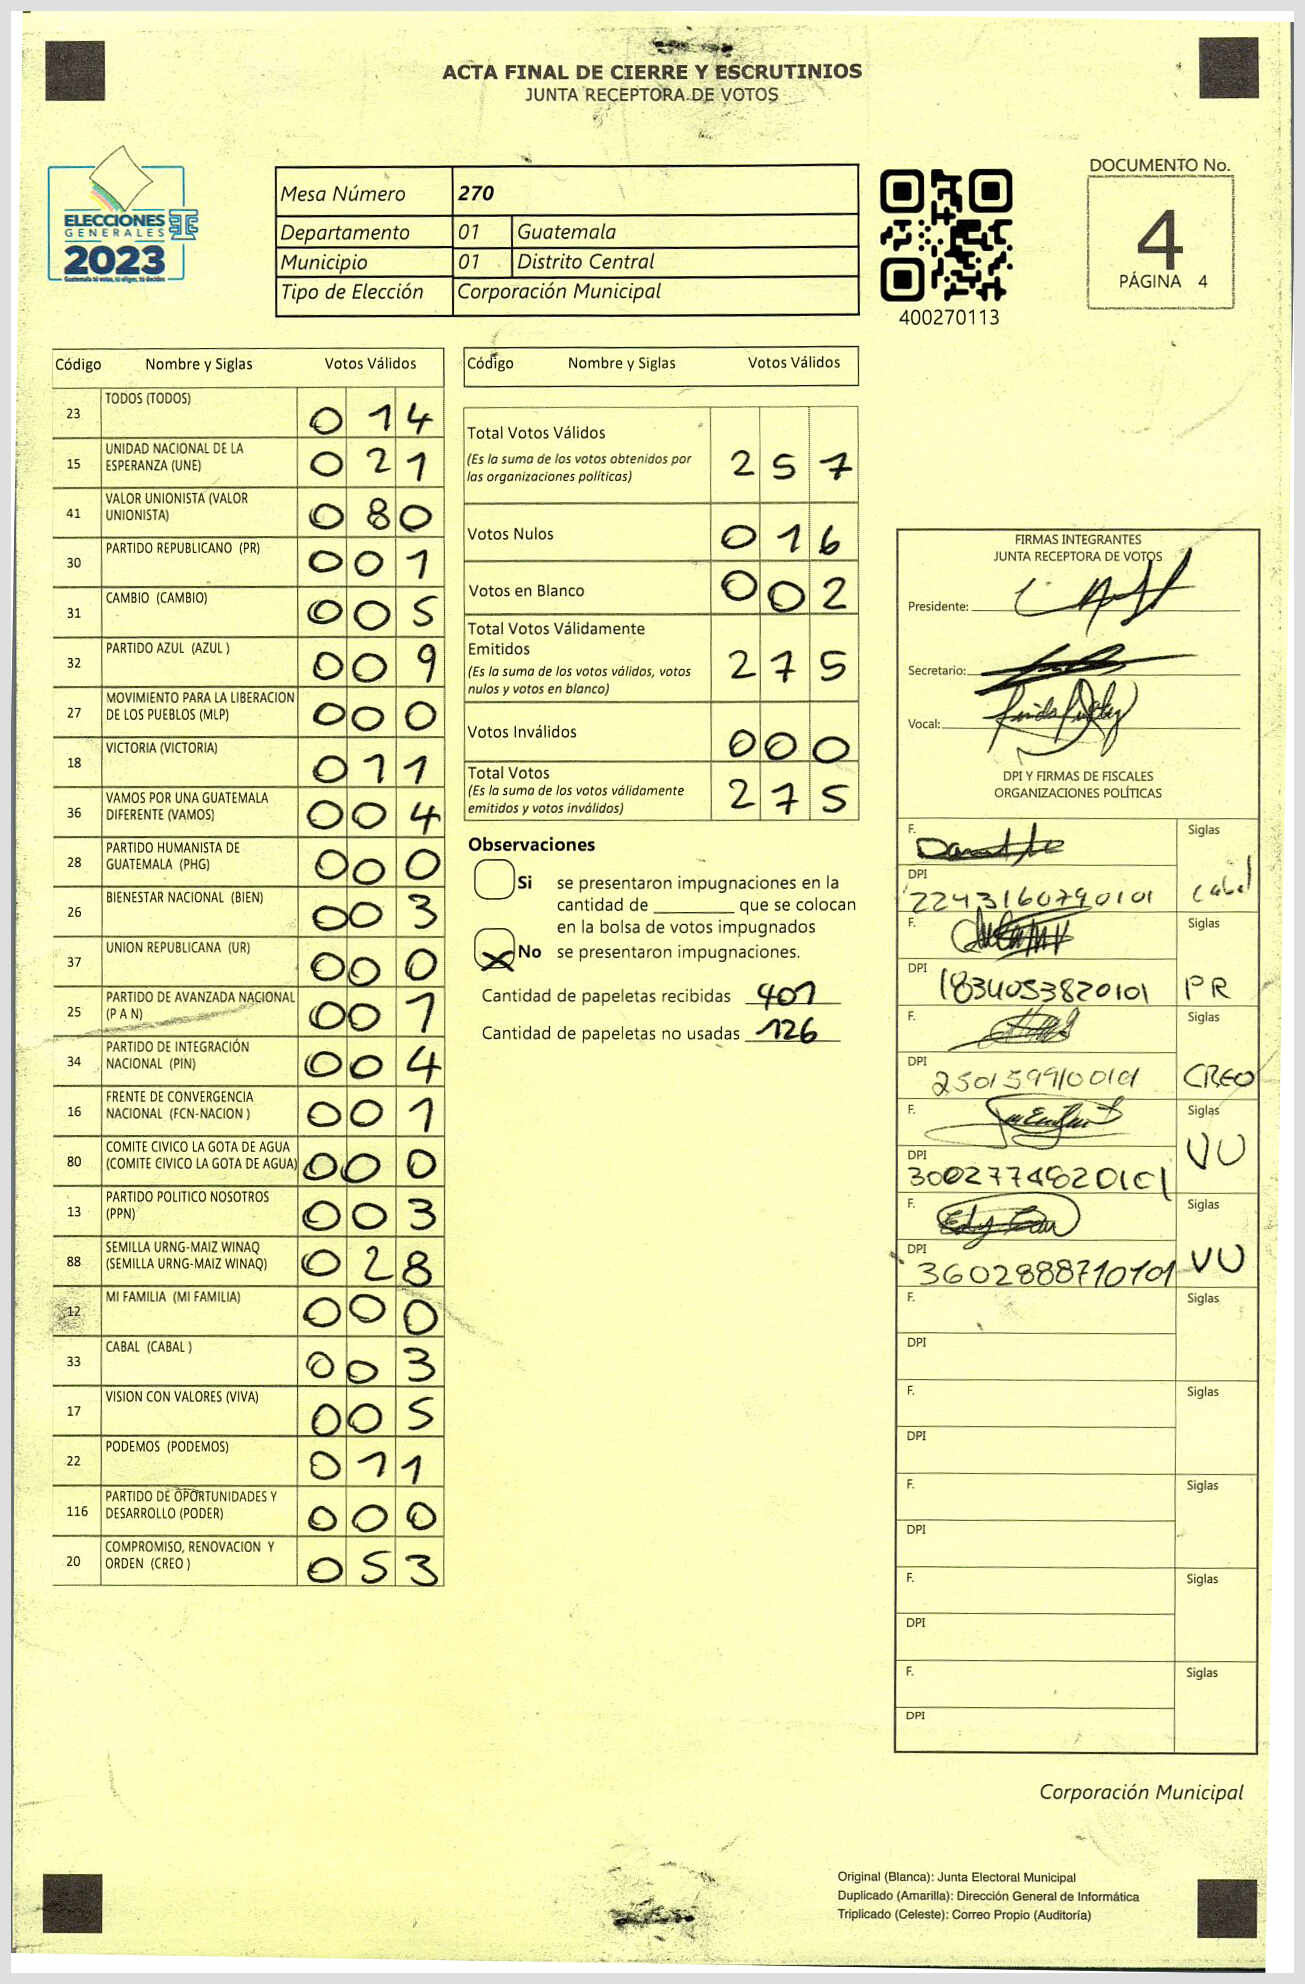 ACTA FINAL DE CIERRE Y ESCRUTINIOS
JUNTA RECEPTORA DE VOTOS
ELECCIONES
GENERALES
2023
Guatemala tú votas, tú eliges, tú decides
Mesa Número 270
Departamento 01 Guatemala
Municipio 01 Distrito Central
Tipo de Elección Corporación Municipal
400270113
DOCUMENTO No.
4
PÁGINA 4
Código Nombre y Siglas Votos Válidos
23 TODOS (TODOS) 0 1 4
15 UNIDAD NACIONAL DE LA
ESPERANZA (UNE) 0 2 1
41 VALOR UNIONISTA (VALOR
UNIONISTA) 0 8 0
30 PARTIDO REPUBLICANO (PR) 0 0 1
31 CAMBIO (CAMBIO) 0 0 5
32 PARTIDO AZUL (AZUL ) 0 0 9
27 MOVIMIENTO PARA LA LIBERACION
DE LOS PUEBLOS (MLP) 0 0 0
18 VICTORIA (VICTORIA) 0 1 1
36 VAMOS POR UNA GUATEMALA
DIFERENTE (VAMOS) 0 0 4
28 PARTIDO HUMANISTA DE
GUATEMALA (PHG) 0 0 0
26 BIENESTAR NACIONAL (BIEN) 0 0 3
37 UNION REPUBLICANA (UR) 0 0 0
25 PARTIDO DE AVANZADA NACIONAL
(P A N) 0 0 1
34 PARTIDO DE INTEGRACIÓN
NACIONAL (PIN) 0 0 4
16 FRENTE DE CONVERGENCIA
NACIONAL (FCN-NACION ) 0 0 1
80 COMITE CIVICO LA GOTA DE AGUA
(COMITE CIVICO LA GOTA DE AGUA) 0 0 0
13 PARTIDO POLITICO NOSOTROS
(PPN) 0 0 3
88 SEMILLA URNG-MAIZ WINAQ
(SEMILLA URNG-MAIZ WINAQ) 0 2 8
12 MI FAMILIA (MI FAMILIA) 0 0 0
33 CABAL (CABAL ) 0 0 3
17 VISION CON VALORES (VIVA) 0 0 5
22 PODEMOS (PODEMOS) 0 1 1
116 PARTIDO DE OPORTUNIDADES Y
DESARROLLO (PODER) 0 0 0
20 COMPROMISO, RENOVACION Y
ORDEN (CREO ) 0 5 3
Código Nombre y Siglas Votos Válidos
Total Votos Válidos
(Es la suma de los votos obtenidos por
las organizaciones políticas) 2 5 7
Votos Nulos 0 1 6
Votos en Blanco 0 0 2
Total Votos Válidamente
Emitidos
(Es la suma de los votos válidos, votos
nulos y votos en blanco) 2 7 5
Votos Inválidos 0 0 0
Total Votos
(Es la suma de los votos válidamente
emitidos y votos inválidos) 2 7 5
Observaciones
Si se presentaron impugnaciones en la
cantidad de ________ que se colocan
en la bolsa de votos impugnados
No se presentaron impugnaciones.
Cantidad de papeletas recibidas 401
Cantidad de papeletas no usadas 126
FIRMAS INTEGRANTES
JUNTA RECEPTORA DE VOTOS
Presidente:
Secretario:
Vocal:
DPI Y FIRMAS DE FISCALES
ORGANIZACIONES POLÍTICAS
F. Siglas
DPI
2243160790101 Cabal
F. Siglas
DPI
1834053820101 PR
F. Siglas
DPI
2501599100101 CREO
F. Siglas
DPI VU
3002774820101
F. Siglas
DPI VU
3602888710101
F. Siglas
DPI
F. Siglas
DPI
F. Siglas
DPI
F. Siglas
DPI
F. Siglas
DPI
Corporación Municipal
Original (Blanca): Junta Electoral Municipal
Duplicado (Amarilla): Dirección General de Informática
Triplicado (Celeste): Correo Propio (Auditoría)